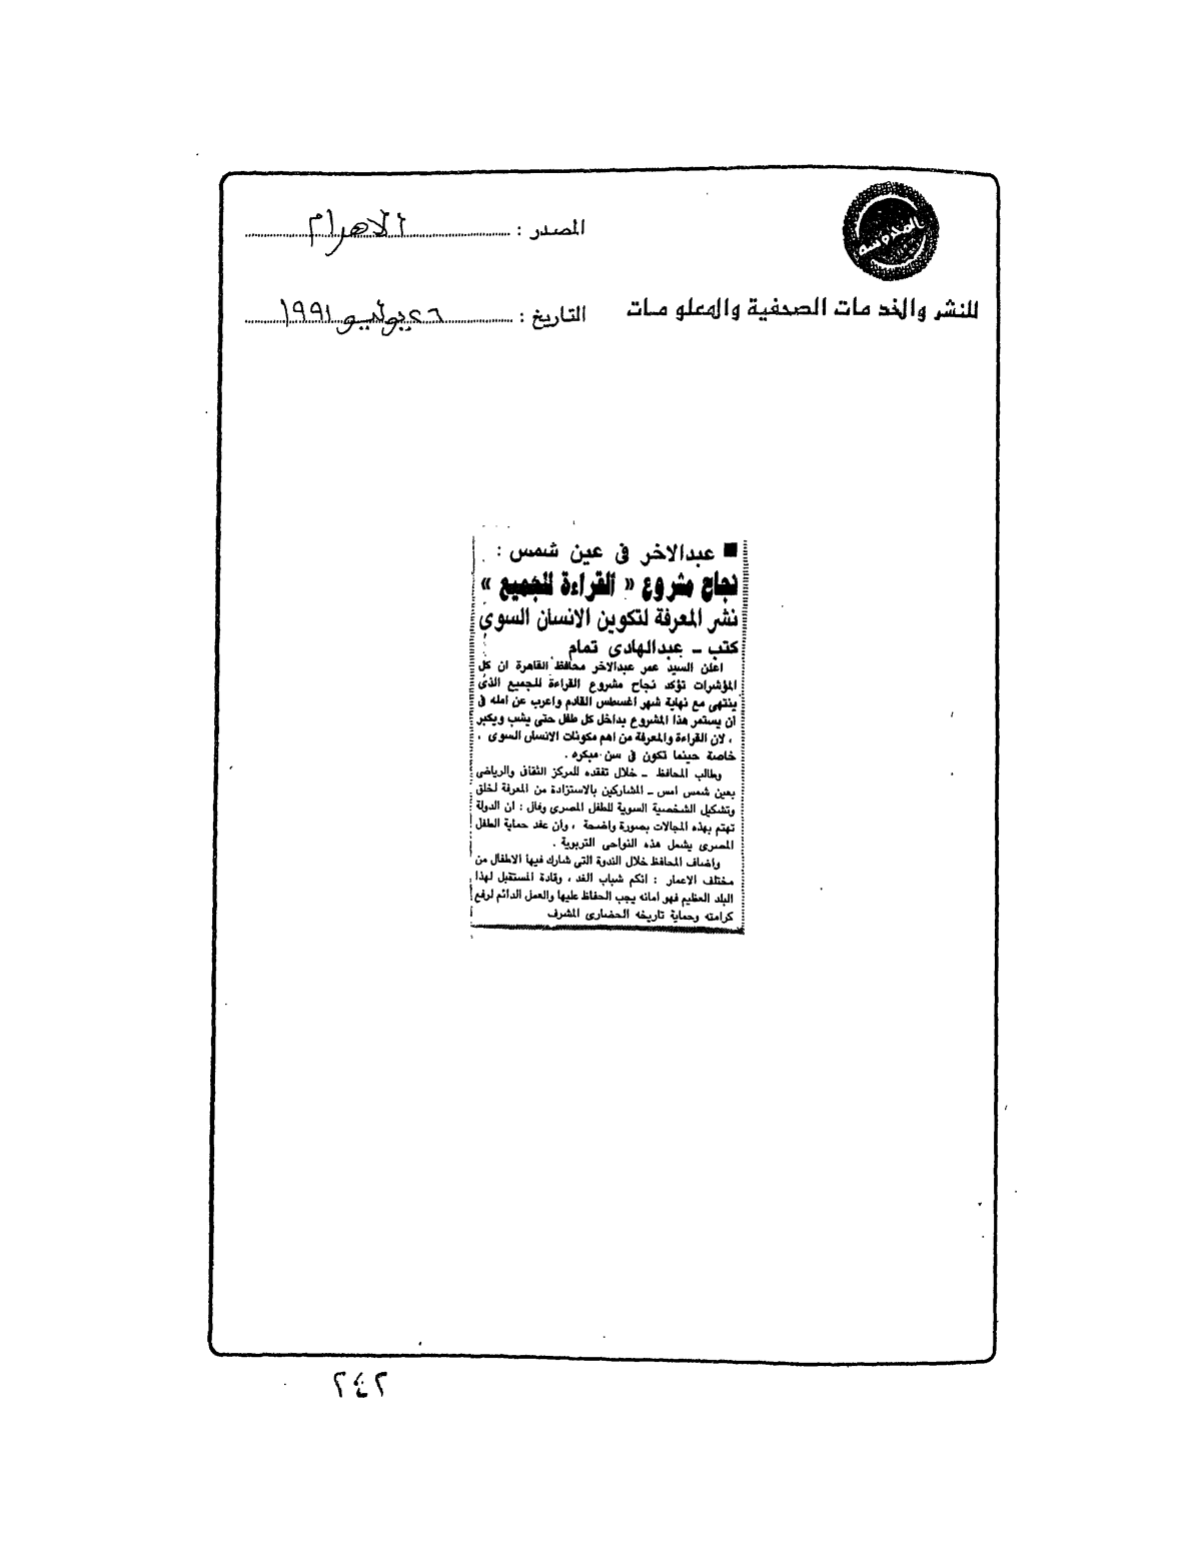 المحروسة
للنشر والخدمات الصحفية والمعلومات
المصدر : الاهرام
التاريخ : ٢٦ يوليو ١٩٩١
■ عبدالاخر فى عين شمس :
نجاح مشروع « القراءة للجميع »
نشر المعرفة لتكوين الانسان السوى
كتب ـ عبدالهادى تمام
اعلن السيد عمر عبدالاخر محافظ القاهرة ان كل
المؤشرات تؤكد نجاح مشروع القراءة للجميع الذى
ينتهى مع نهاية شهر اغسطس القادم واعرب عن امله فى
ان يستمر هذا المشروع بداخل كل طفل حتى يشب ويكبر
، لان القراءة والمعرفة من اهم مكونات الانسان السوى ،
خاصة حينما تكون فى سن مبكره .
وطالب المحافظ ـ خلال تفقده للمركز الثقافى والرياضى
بعين شمس امس ـ المشاركين بالاستزادة من المعرفة لخلق
وتشكيل الشخصية السوية للطفل المصرى وقال : ان الدولة
تهتم بهذه المجالات بصورة واضحة ، وان عقد حماية الطفل
المصرى يشمل هذه النواحى التربوية .
واضاف المحافظ خلال الندوة التى شارك فيها الاطفال من
مختلف الاعمار : انكم شباب الغد ، وقادة المستقبل لهذا
البلد العظيم فهو امانه يجب الحفاظ عليها والعمل الدائم لرفع
كرامته وحماية تاريخه الحضارى المشرف
٢٤٢